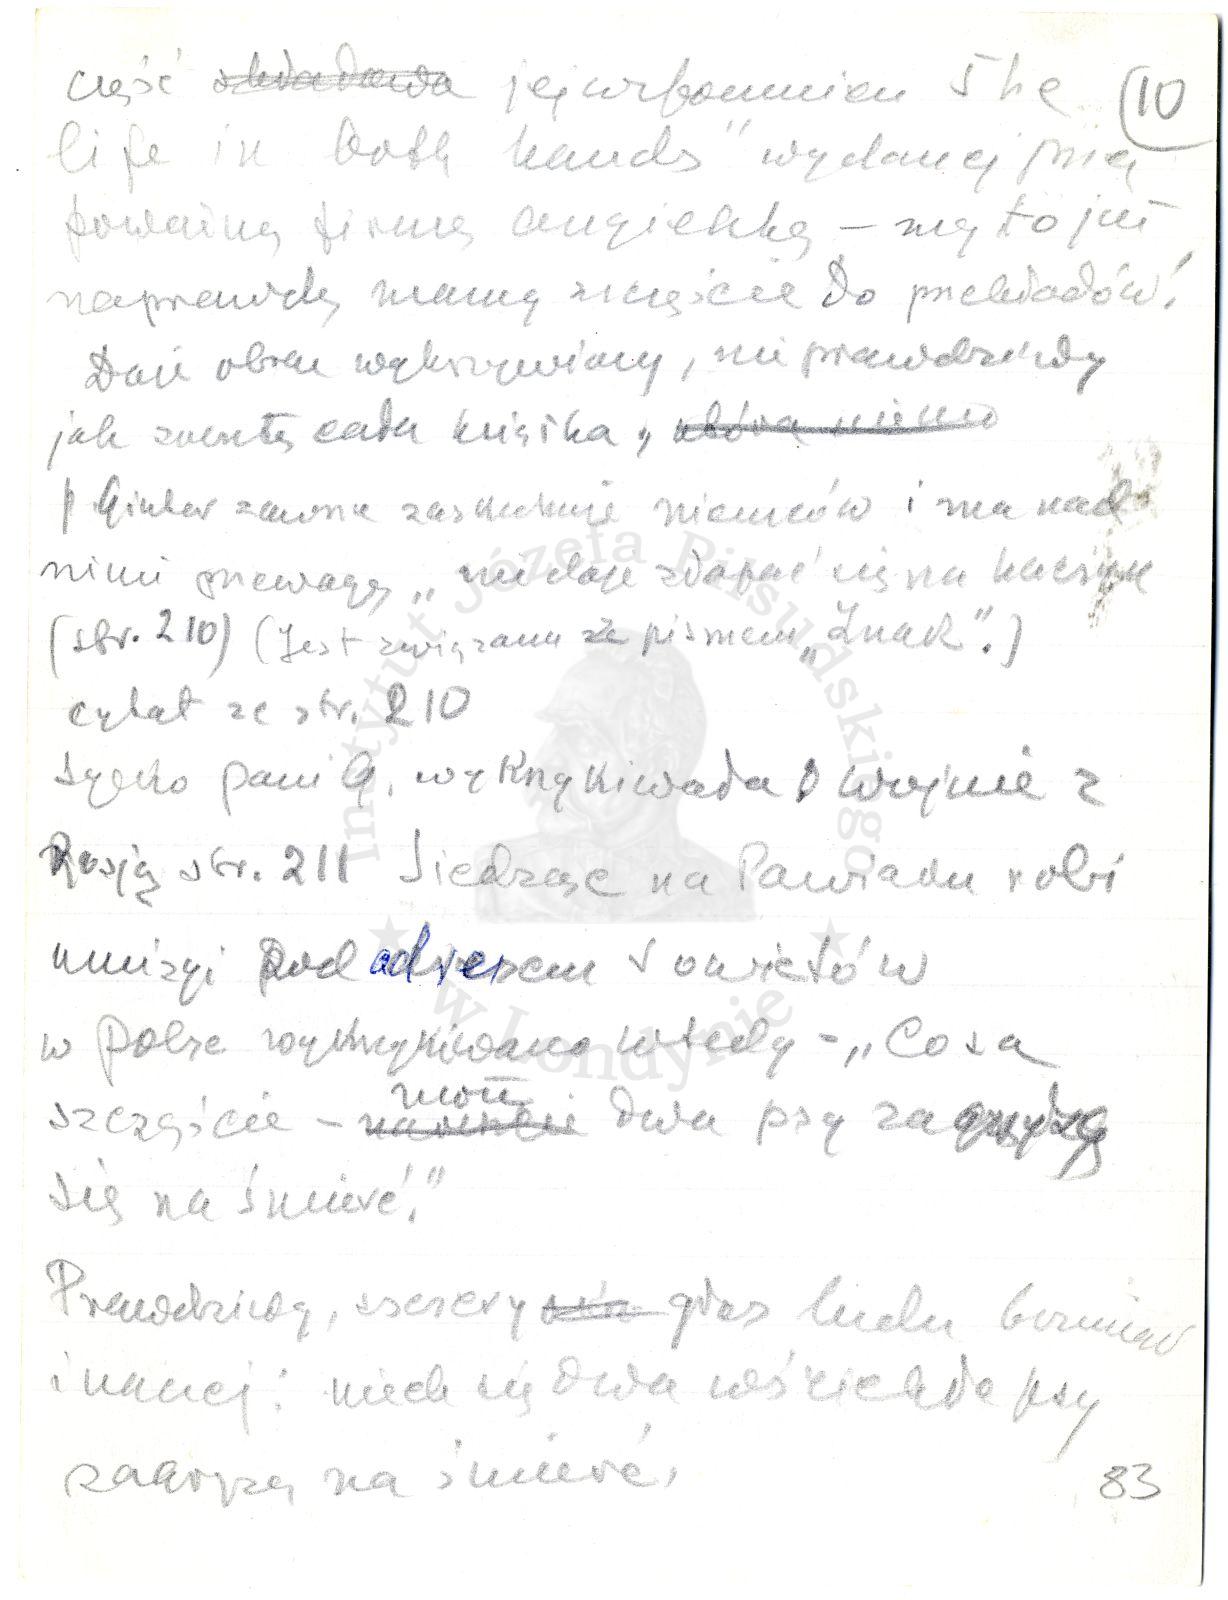 część składowa jej wspomnień The (10
life in both hands" wydanej przez
poważną firmę angielską – my to już
naprawdę mamy szczęście do przekładów!
Daje obraz wykrzywiony, nieprawdziwy
jak zresztą cała książka, która
p Ginter zawsze zaskakuje niemców i ma nad
nimi przewagę, nie daje złapać się na
(str. 210) (Jest związana ze pismem „Znak".)
cytat ze str. 210
pani G. wykrzykiwała o wojnie z
Rosją str. 211 Siedząc na Pawiaku robi
umizgi pod adresem Sowietów
w Polsce wykrzykiwano wtedy – „Co za
szczęście – może dwa psy zagryzą
się na śmierć."
Prawdziwy, szczery głos ludu brzmiał
inaczej: niech się dwa wściekłe psy
zagryzą na śmierć.
83
Instytut Józefa Piłsudskiego
w Londynie